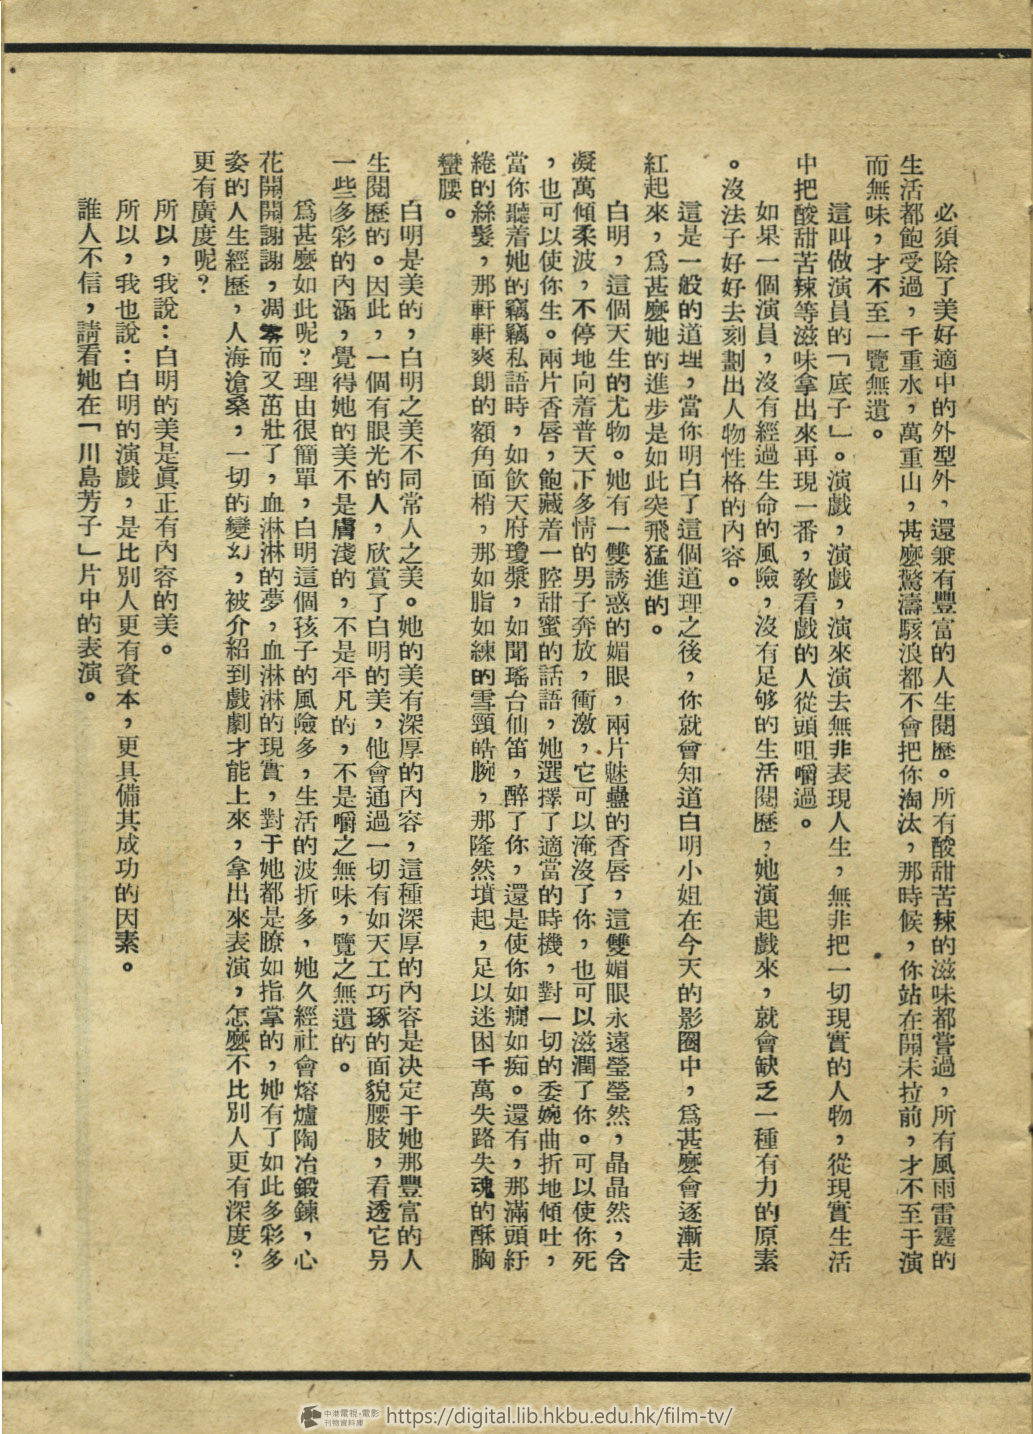 必須除了美好適中的外型外，還兼有豐富的人生閱歷。所有酸甜苦辣的滋味都嘗過，所有風雨雷霆的
生活都飽受過，千重水，萬重山，甚麼驚濤駭浪都不會把你淘汰，那時候，你站在開末拉前，才不至于演
而無味，才不至一覽無遺。
這叫做演員的「底子」。演戲，演戲，演來演去無非表現人生，無非把一切現實的人物，從現實生活
中把酸甜苦辣等滋味拿出來再現一番，敎看戲的人從頭咀嚼過。
如果一個演員，沒有經過生命的風險，沒有足够的生活閱歷，她演起戲來，就會缺乏一種有力的原素
。沒法子好好去刻劃出人物性格的內容。
這是一般的道理，當你明白了這個道理之後，你就會知道白明小姐在今天的影圈中，爲甚麼會逐漸走
紅起來，爲甚麼她的進步是如此突飛猛進的。
白明，這個天生的尤物。她有一雙誘惑的媚眼，兩片魅蠱的香唇，這雙媚眼永遠瑩瑩然，晶晶然，含
凝萬傾柔波，不停地向着普天下多情的男子奔放，衝激，它可以淹沒了你，也可以滋潤了你。可以使你死
，也可以使你生。兩片香唇，飽藏着一腔甜蜜的話語，她選擇了適當的時機，對一切的委婉曲折地傾吐，
當你聽着她的竊竊私語時，如飲天府瓊漿，如聞瑤台仙笛，醉了你，還是使你如癎如痴。還有，那滿頭紆
綣的絲髮，那軒軒爽朗的額角面梢，那如脂如練的雪頸皓腕，那隆然墳起，足以迷困千萬失路失魂的酥胸
蠻腰。
白明是美的，白明之美不同常人之美。她的美有深厚的內容，這種深厚的內容是決定于她那豐富的人
生閱歷的。因此，一個有眼光的人，欣賞了白明的美，他會通過一切有如天工巧琢的面貌腰肢，看透它另
一些多彩的內涵，覺得她的美不是膚淺的，不是平凡的，不是嚼之無味，覽之無遺的。
爲甚麼如此呢？理由很簡單，白明這個孩子的風險多，生活的波折多，她久經社會熔爐陶冶鍛鍊，心
花開開謝謝，凋零而又茁壯了，血淋淋的夢，血淋淋的現實，對于她都是瞭如指掌的，她有了如此多彩多
姿的人生經歷，人海滄桑，一切的變幻，被介紹到戲劇才能上來，拿出來表演，怎麼不比別人更有深度？
更有廣度呢？
所以，我說：白明的美是眞正有內容的美。
所以，我也說：白明的演戲，是比別人更有資本，更具備其成功的因素。
誰人不信，請看她在「川島芳子」片中的表演。
中港電視·電影
刊物資料庫
https://digital.lib.hkbu.edu.hk/film-tv/